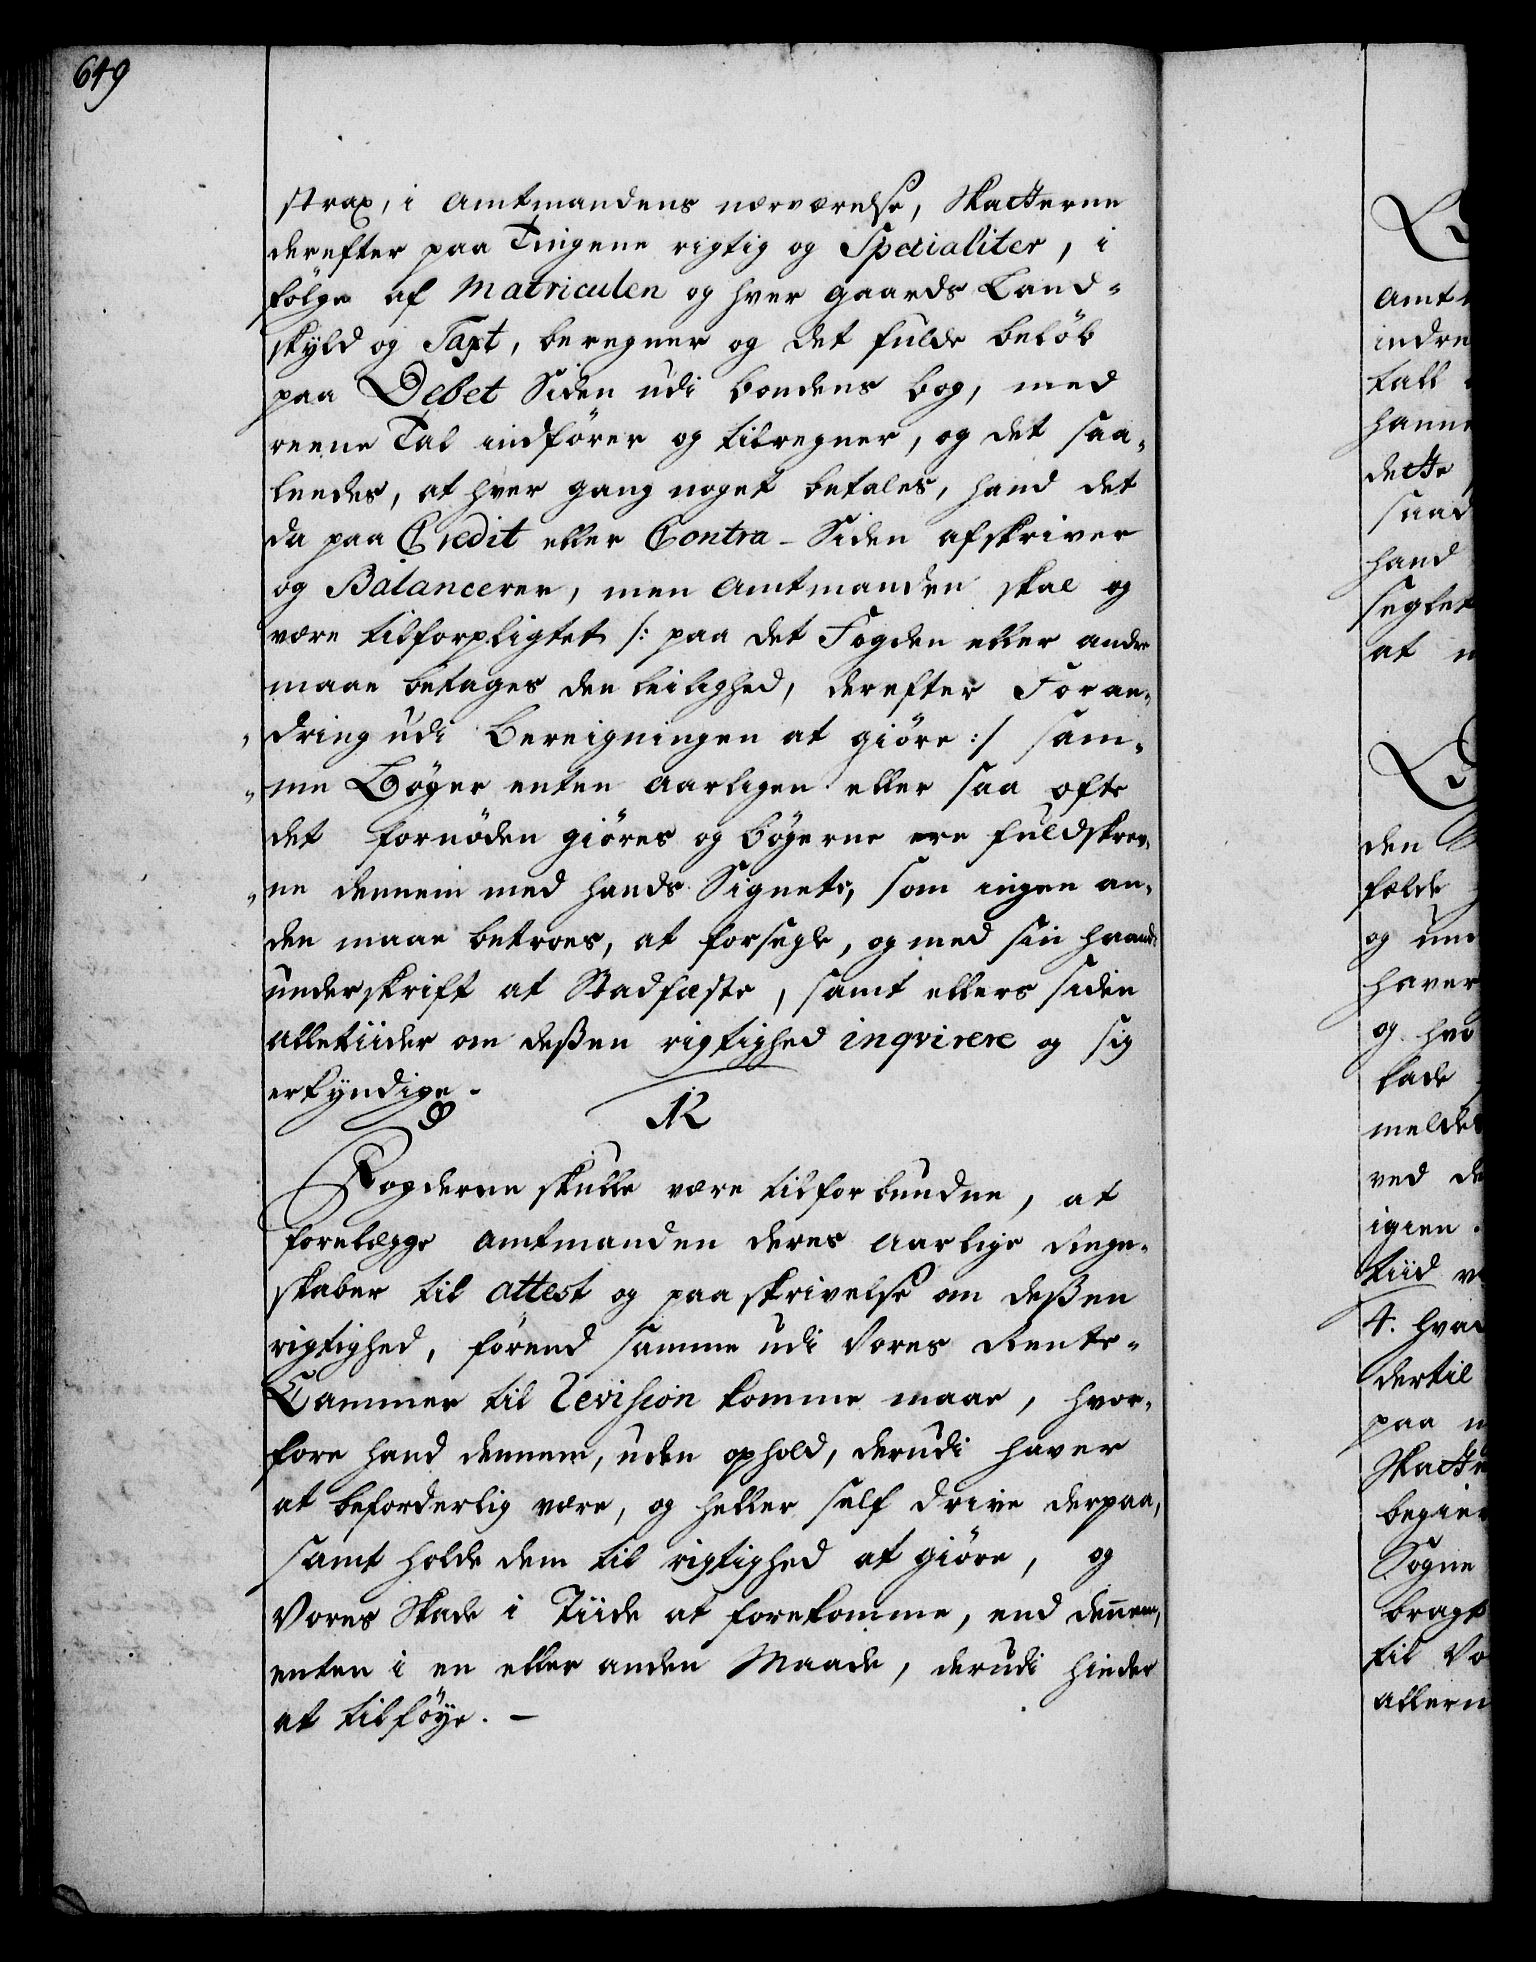 649
strax, i Amtmandens nærværelse, Skatterne
derefter paa Tingene rigtig og Specialiter, i
følge af Matriculen og hver gaards Land-
skyld og Taxt, beregner og det fulde beløb
paa Debet Siden udi bondens bog, med
reene Tal indfører og tilregner, og det saa-
leedes, at hver gang noget betales, hand det
da paa Credit eller Contra-Siden afskriver
og Balancerer, men Amtmanden skal og
være tilforpligtet /: paa det Fogden eller andre
maae betages den leilighed, derefter Foran-
dring udi Bereigningen at giøre :/ sam-
me Bøger enten Aarligen eller saa ofte
det fornøden giøres og bøgerne ere fuldskrev-
ne dennem med hands Signete, som ingen an-
den maae betroes, at forsegle, og med sin haand-
underskrift at Stadfæste, samt ellers siden
alletiider om deßen rigtighed inqvirere og sig
erkyndige.
12
Fogderne skulle være tilforbundne, at
forelægge Amtmanden deres Aarlige Regn-
skaber til Attest og paaskrivelse om deßen
rigtighed, førend samme udi Vores Rente-
Cammer til Revision komme maae, hvor-
fore hand dennem, uden ophold, derudi haver
at beforderlig være, og heller self drive derpaa,
samt holde dem til rigtighed at giøre, og
Vores Skade i Tiide at forekomme, end dennem,
enten i en eller anden Maade, derudi hinder
at tilføye. -
Amt
indre
tall
hanne
dette
saad
hand
seglet
at
den
fælde
og
haver
og hvo
kade
meldes
ved de
igien.
tiid
4. hvad
dertil
paa
Skatte
begier
Sogne
bragt
til Vo
allern